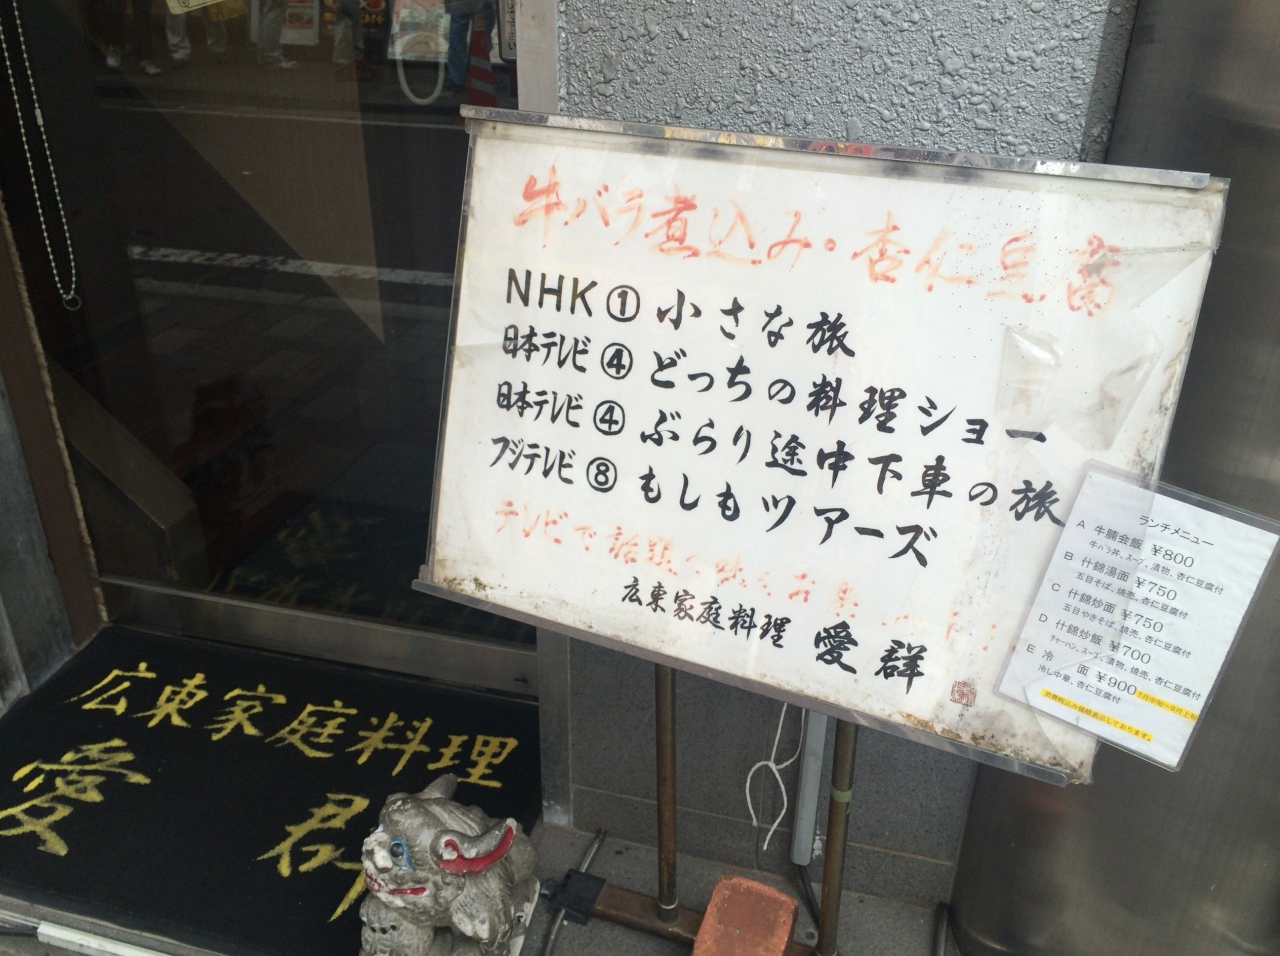 牛バラ煮込み・杏仁豆腐
NHK①小さな旅
日本テレビ④どっちの料理ショー
日本テレビ④ぶらり途中下車の旅
フジテレビ⑧もしもツアーズ
テレビで話題の
広東家庭料理 愛群
ランチメニュー
A 牛腩会飯 ¥800
牛バラ丼、スープ、漬物、杏仁豆腐付
B 什錦湯面 ¥750
五目そば、焼売、杏仁豆腐付
C 什錦炒面 ¥750
五目やきそば、焼売、杏仁豆腐付
D 什錦炒飯 ¥700
チャーハン、スープ、漬物、焼売、杏仁豆腐付
E 冷 面 ¥900 7月中旬〜9月上旬
冷し中華、杏仁豆腐付
消費税込み価格表示しております。
広東家庭料理
愛群